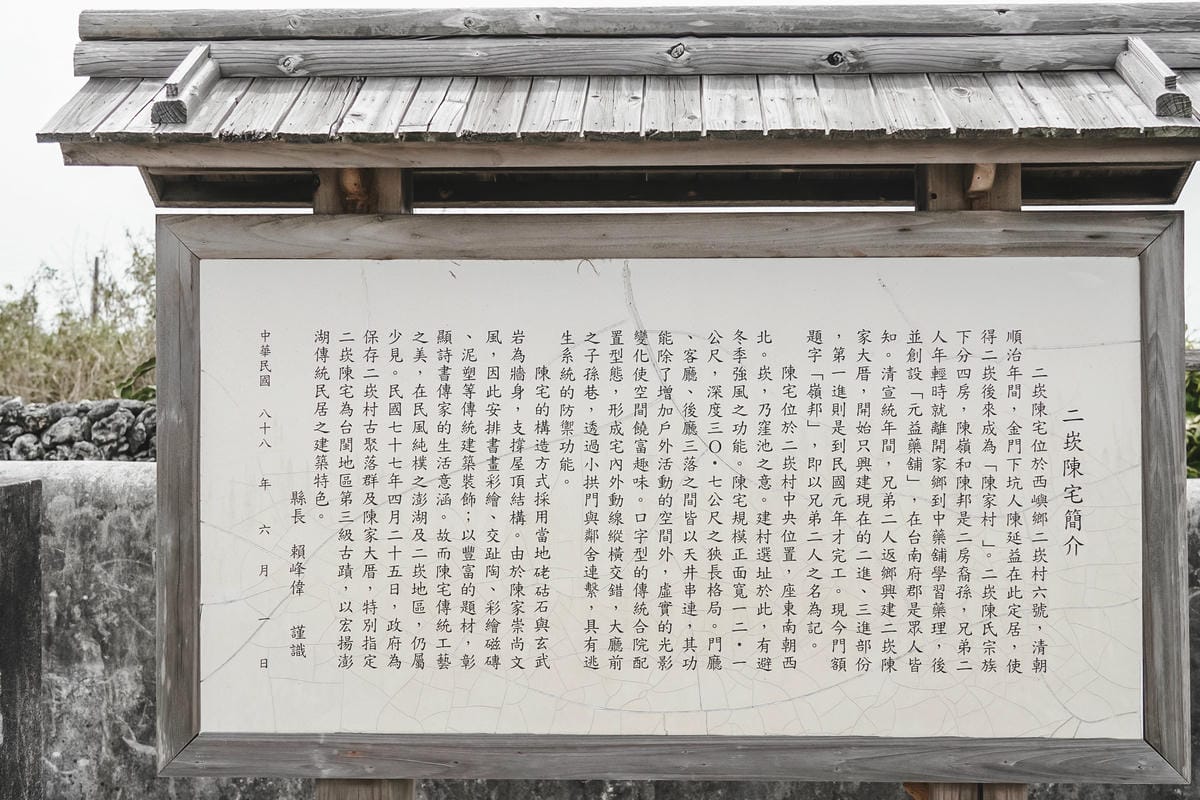 二崁陳宅簡介
二崁陳宅位於西嶼鄉二崁村六號，清朝
順治年間，金門下坑人陳延益在此定居，使
得二崁後來成為「陳家村」。二崁陳氏宗族
下分四房，陳嶺和陳邦是二房裔孫，兄弟二
人年輕時就離開家鄉到中藥舖學習藥理，後
並創設「元益藥舖」，在台南府郡是眾人皆
知。清宣統年間，兄弟二人返鄉興建二崁陳
家大厝，開始只興建現在的二進、三進部份
，第一進則是到民國元年才完工。現今門額
題字「嶺邦」，即以兄弟二人之名為記。
陳宅位於二崁村中央位置，座東南朝西
北。崁，乃窪池之意。建村選址於此，有避
冬季強風之功能。陳宅規模正面寬一二・一
公尺，深度三〇・七公尺之狹長格局。門廳
、客廳、後廳三落之間皆以天井串連，其功
能除了增加戶外活動的空間外，虛實的光影
變化使空間饒富趣味。口字型的傳統合院配
置型態，形成宅內外動線縱橫交錯，大廳前
之子孫巷，透過小拱門與鄰舍連繫，具有逃
生系統的防禦功能。
陳宅的構造方式採用當地硓𥑮石與玄武
岩為牆身，支撐屋頂結構。由於陳家崇尚文
風，因此安排書畫彩繪、交趾陶、彩繪磁磚
、泥塑等傳統建築裝飾；以豐富的題材，彰
顯詩書傳家的生活意涵。故而陳宅傳統工藝
之美，在民風純樸之澎湖及二崁地區，仍屬
少見。民國七十七年四月二十五日，政府為
保存二崁村古聚落群及陳家大厝，特別指定
二崁陳宅為台閩地區第三級古蹟，以宏揚澎
湖傳統民居之建築特色。
縣長 賴峰偉 謹識
中華民國 八十八 年 六 月 一 日